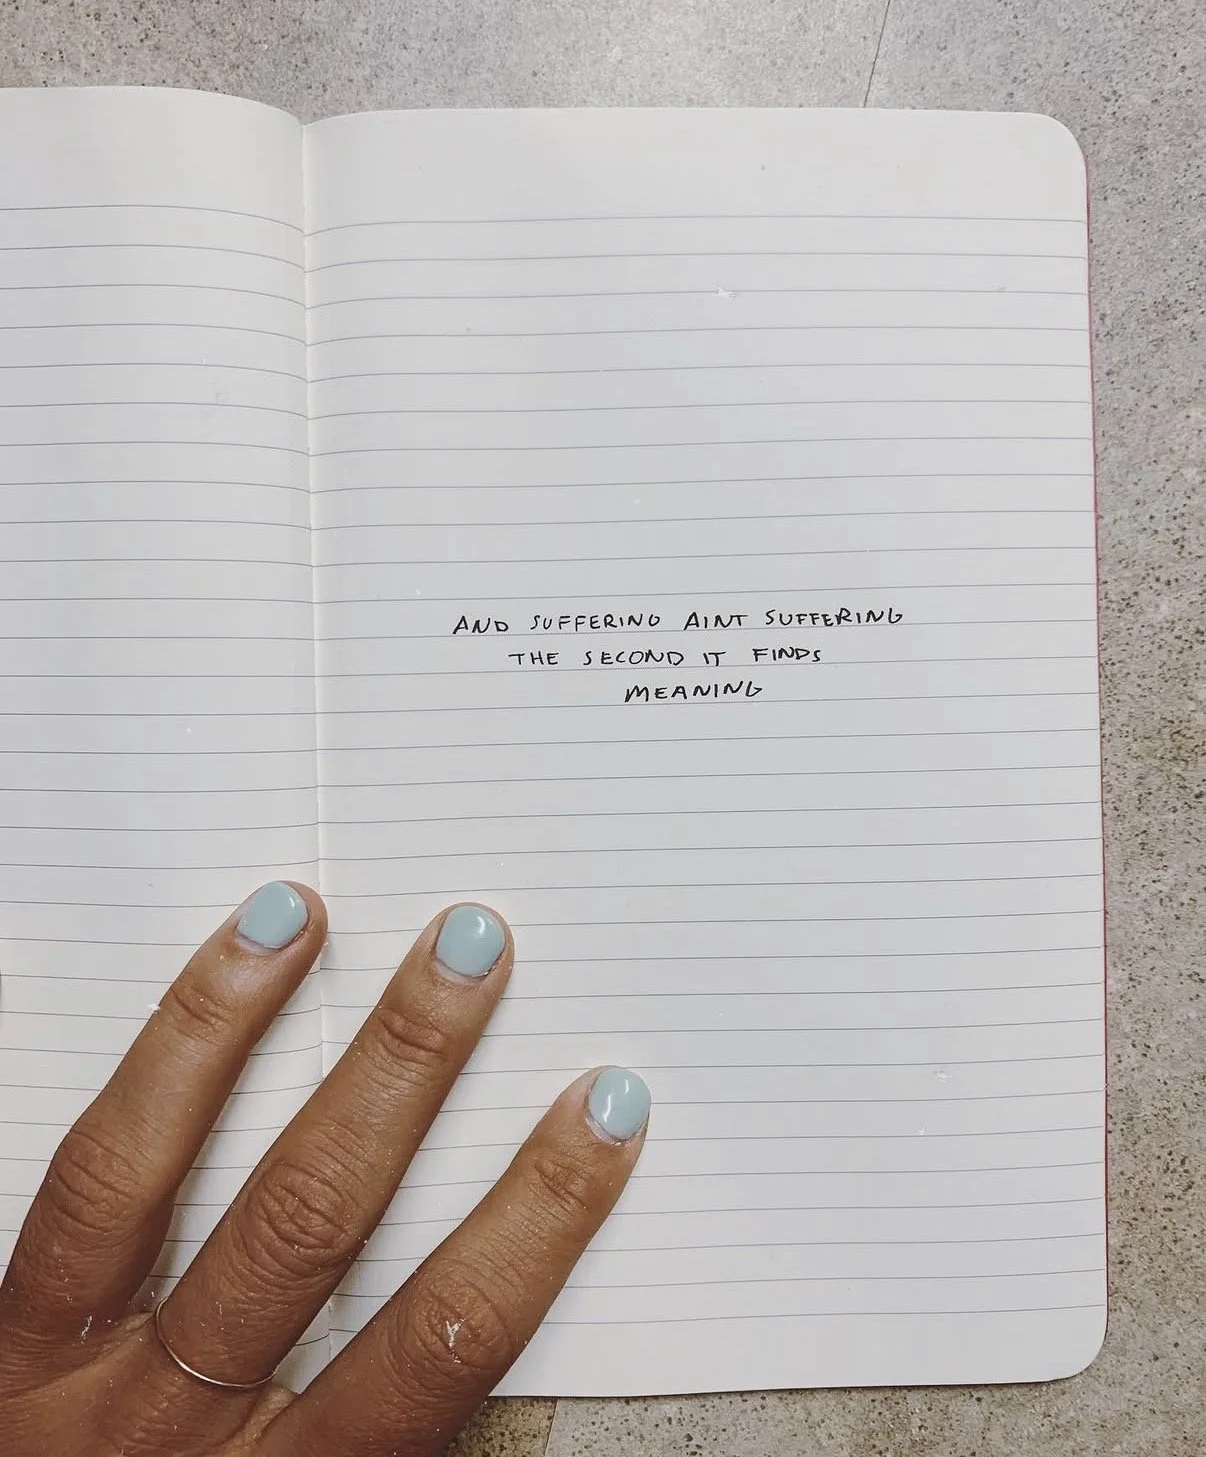 AND SUFFERING AINT SUFFERING
THE SECOND IT FINDS
MEANING